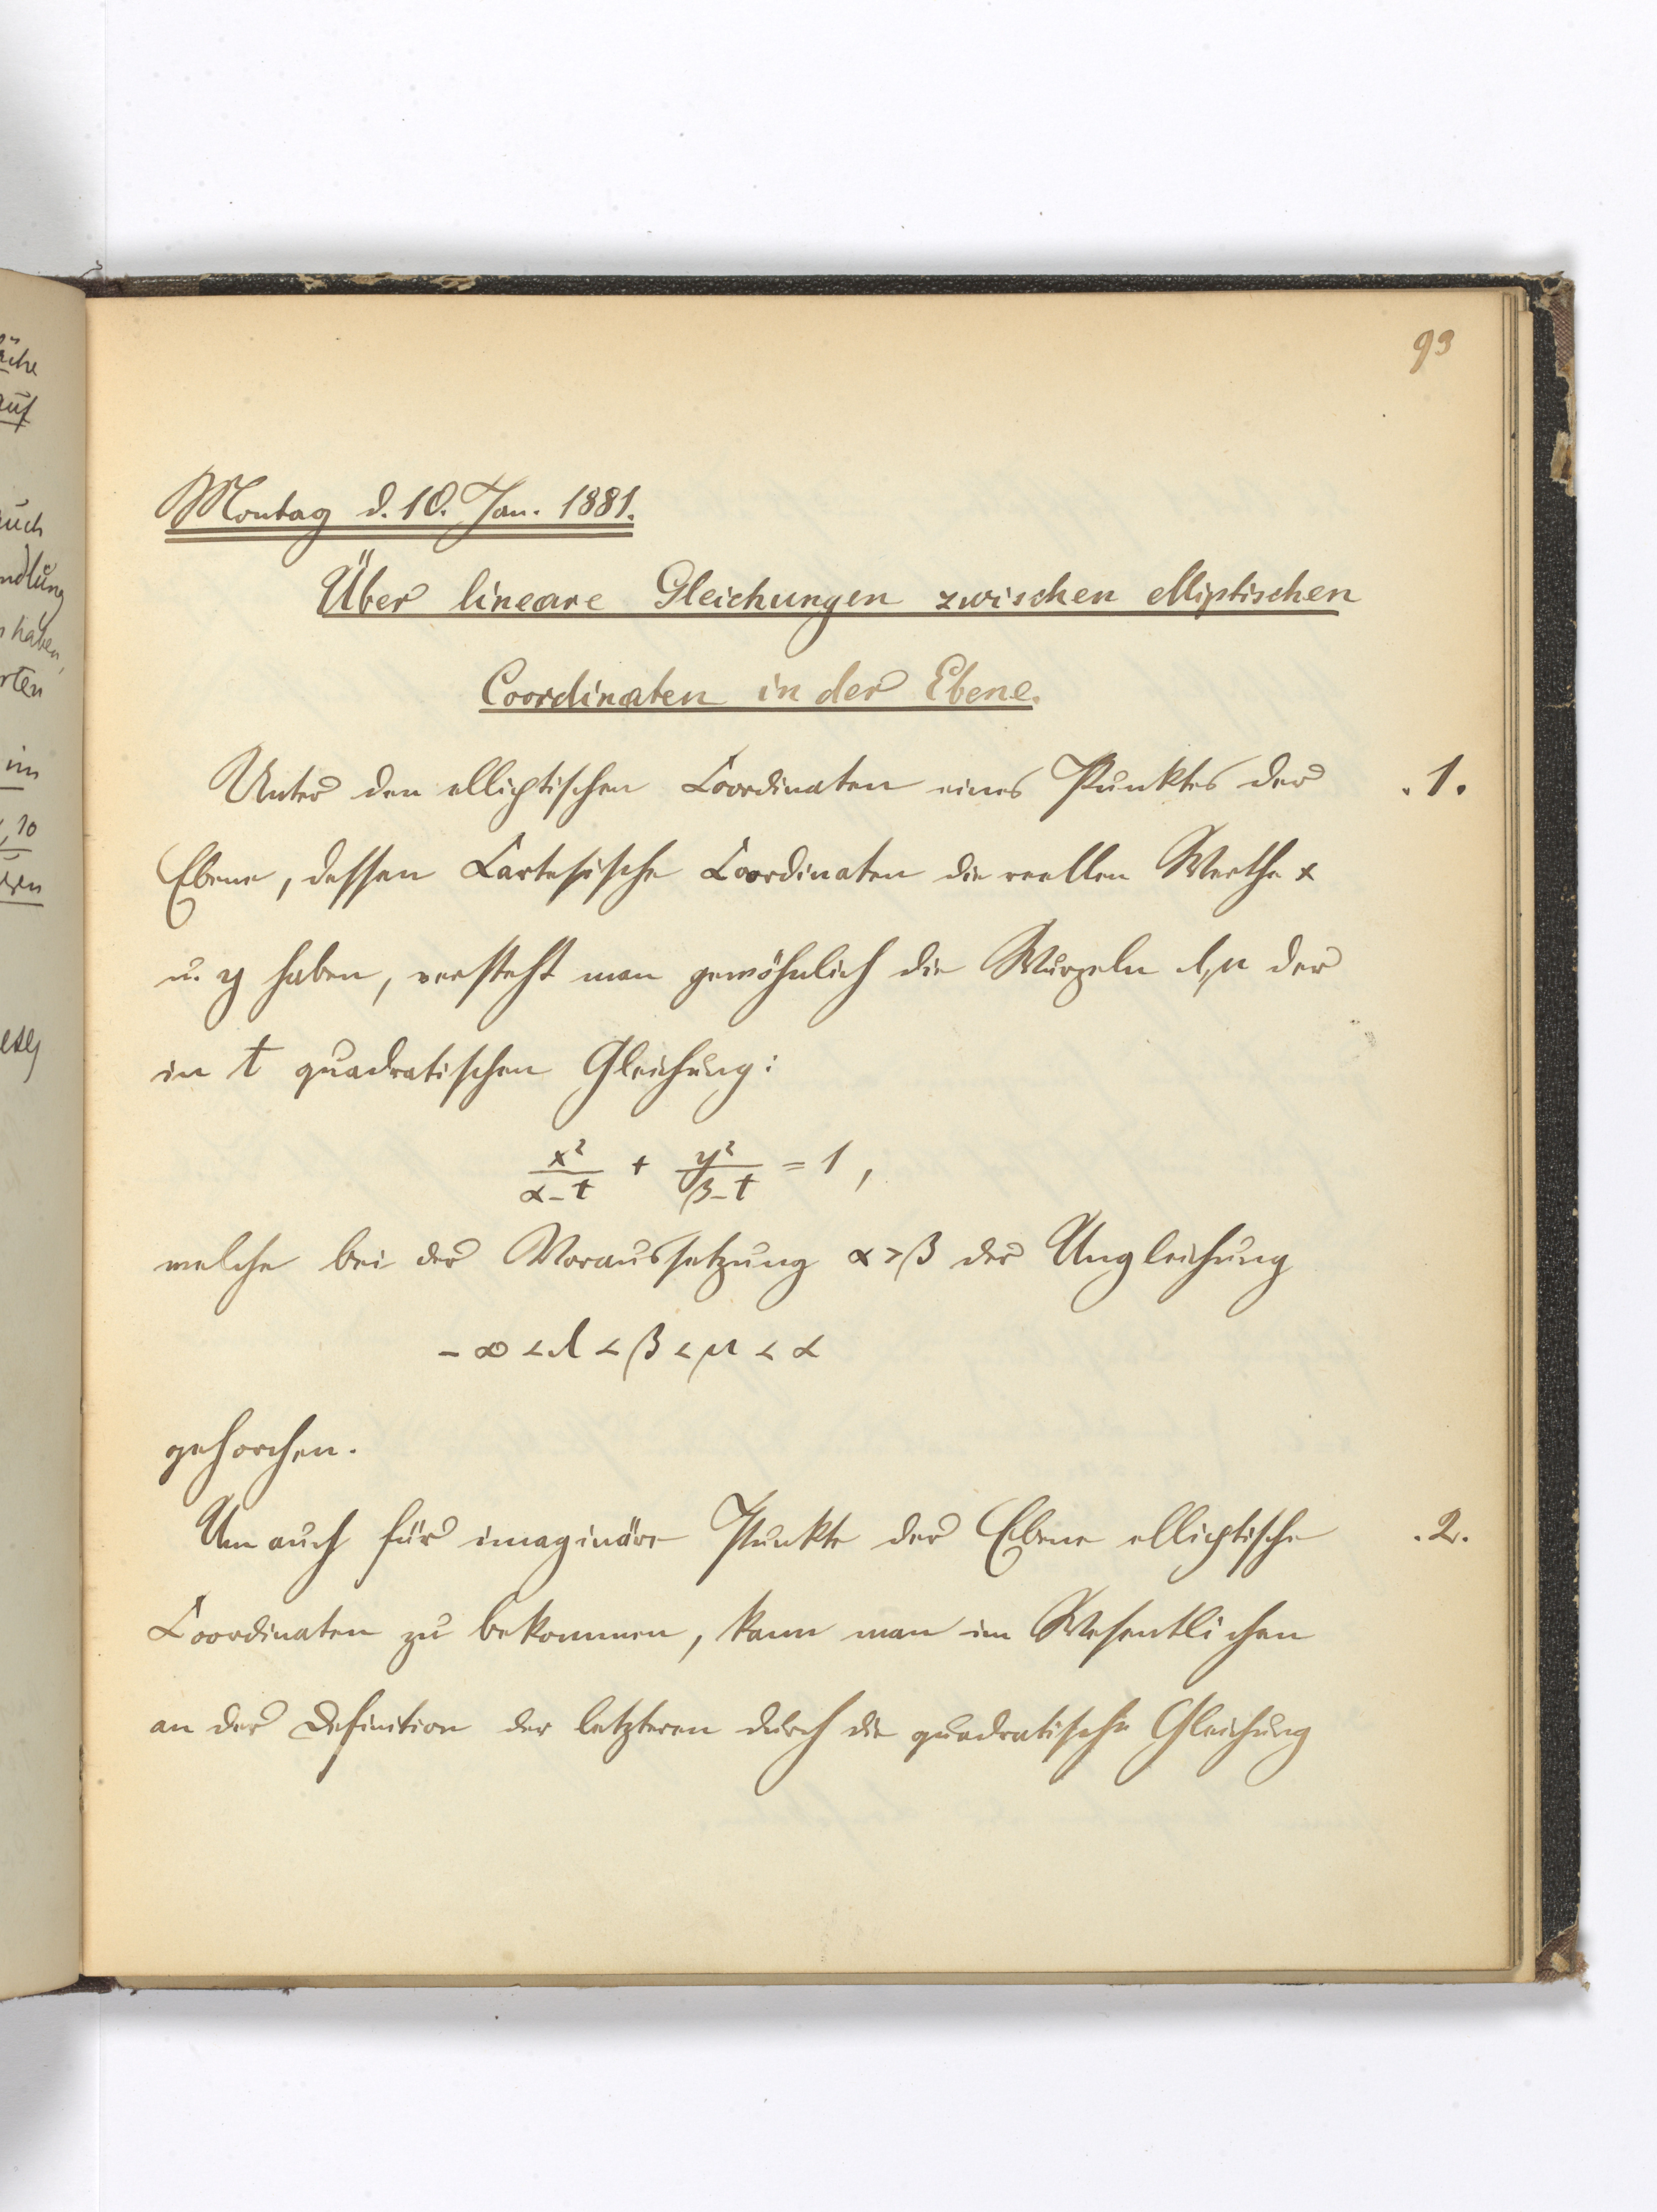 äche
auf
auch
ndlung
haben,
rten
im
10
93
Montag d. 10. Jan. 1881.
Über lineare Gleichungen zwischen elliptischen
Coordinaten in der Ebene.
Unter den elliptischen Coordinaten eines Punktes der .1.
Ebene, dessen Cartesische Coordinaten die reellen Werthe x
u. y haben, versteht man gewöhnlich die Wurzeln λ, μ der
in t quadratischen Gleichung:
x²/(α-t) + y²/(β-t) = 1,
welche bei der Voraussetzung α > β der Ungleichung
-∞ < λ < β < μ < α
gehorchen.
Um auch für imaginäre Punkte der Ebene elliptische .2.
Coordinaten zu bekommen, kann man im Wesentlichen
an der Definition der letzteren durch die quadratische Gleichung